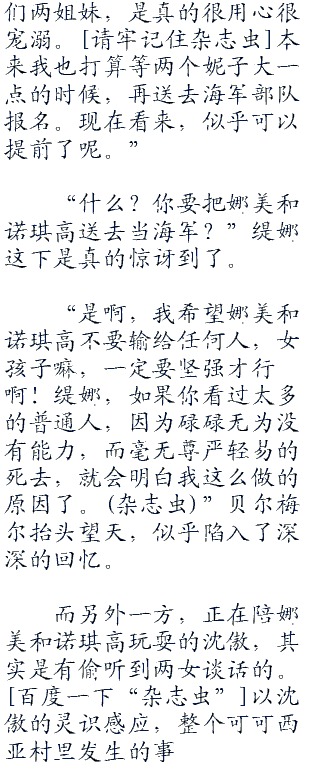 们两姐妹，是真的很用心很
宠溺。[请牢记住杂志虫]本
来我也打算等两个妮子大一
点的时候，再送去海军部队
报名。现在看来，似乎可以
提前了呢。”
“什么？你要把娜美和
诺琪高送去当海军？”缇娜
这下是真的惊讶到了。
“是啊，我希望娜美和
诺琪高不要输给任何人，女
孩子嘛，一定要坚强才行
啊！缇娜，如果你看过太多
的普通人，因为碌碌无为没
有能力，而毫无尊严轻易的
死去，就会明白我这么做的
原因了。(杂志虫)”贝尔梅
尔抬头望天，似乎陷入了深
深的回忆。
而另外一方，正在陪娜
美和诺琪高玩耍的沈傲，其
实是有偷听到两女谈话的。
[百度一下“杂志虫”]以沈
傲的灵识感应，整个可可西
亚村里发生的事